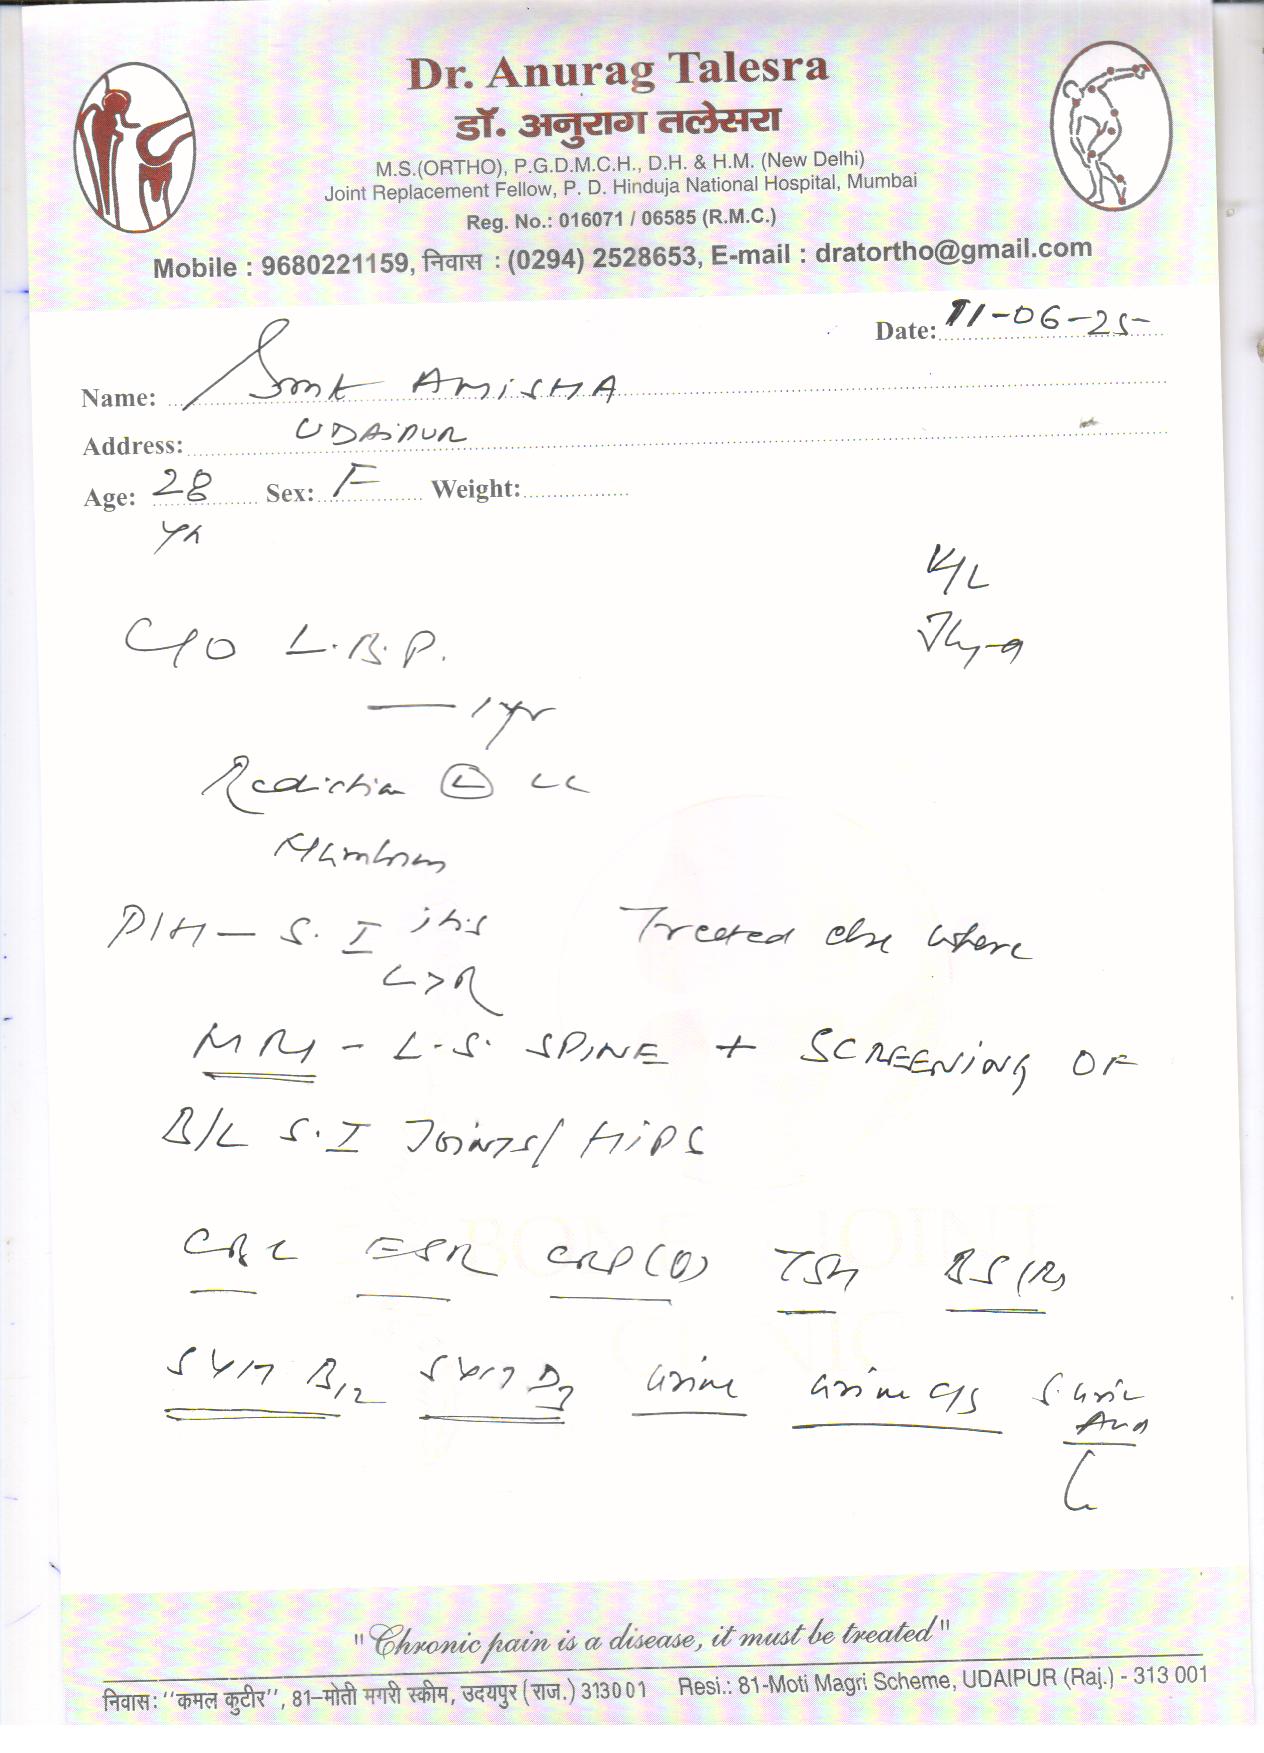 Dr. Anurag Talesra
डॉ. अनुराग तलेसरा
M.S.(ORTHO), P.G.D.M.C.H., D.H. & H.M. (New Delhi)
Joint Replacement Fellow, P. D. Hinduja National Hospital, Mumbai
Reg. No.: 016071 / 06585 (R.M.C.)
Mobile : 9680221159, निवास : (0294) 2528653, E-mail : dratortho@gmail.com
Date: 11-06-25
Name: Smt AMISHA
Address: UDAIPUR
Age: 28 Sex: F Weight:
yr
K/L
C/O L.B.P.
1 yr
Radiation (L) LL
Numbness
P/H - S. I jts Treated else where
L > R
MRI - L.S. SPINE + SCREENING OF
B/L S.I JOINTS/ HIPS
CBC ESR CRP(Q) TSH BS(R)
S VIT B12 S VIT D3 Urine Urine C/S S. Uric
Acid
"Chronic pain is a disease, it must be treated"
निवास: ''कमल कुटीर'', 81-मोती मगरी स्कीम, उदयपुर (राज.) 313001 Resi.: 81-Moti Magri Scheme, UDAIPUR (Raj.) - 313 001